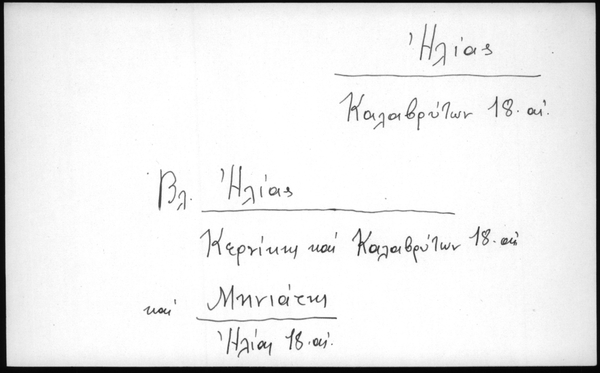 Ἠλίας
Καλαβρύτων 18. αἰ.
Βλ. Ἠλίας
Κερνίκης καὶ Καλαβρύτων 18. αἰ
καὶ Μηνιάτης
Ἠλίας 18. αἰ.